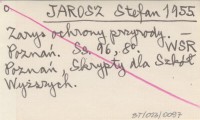 JAROSZ Stefan 1955
Zarys ochrony przyrody. —
Poznań. Ss. 96, 8°. WSR
Poznań, Skrypty dla Szkół
Wyższych.